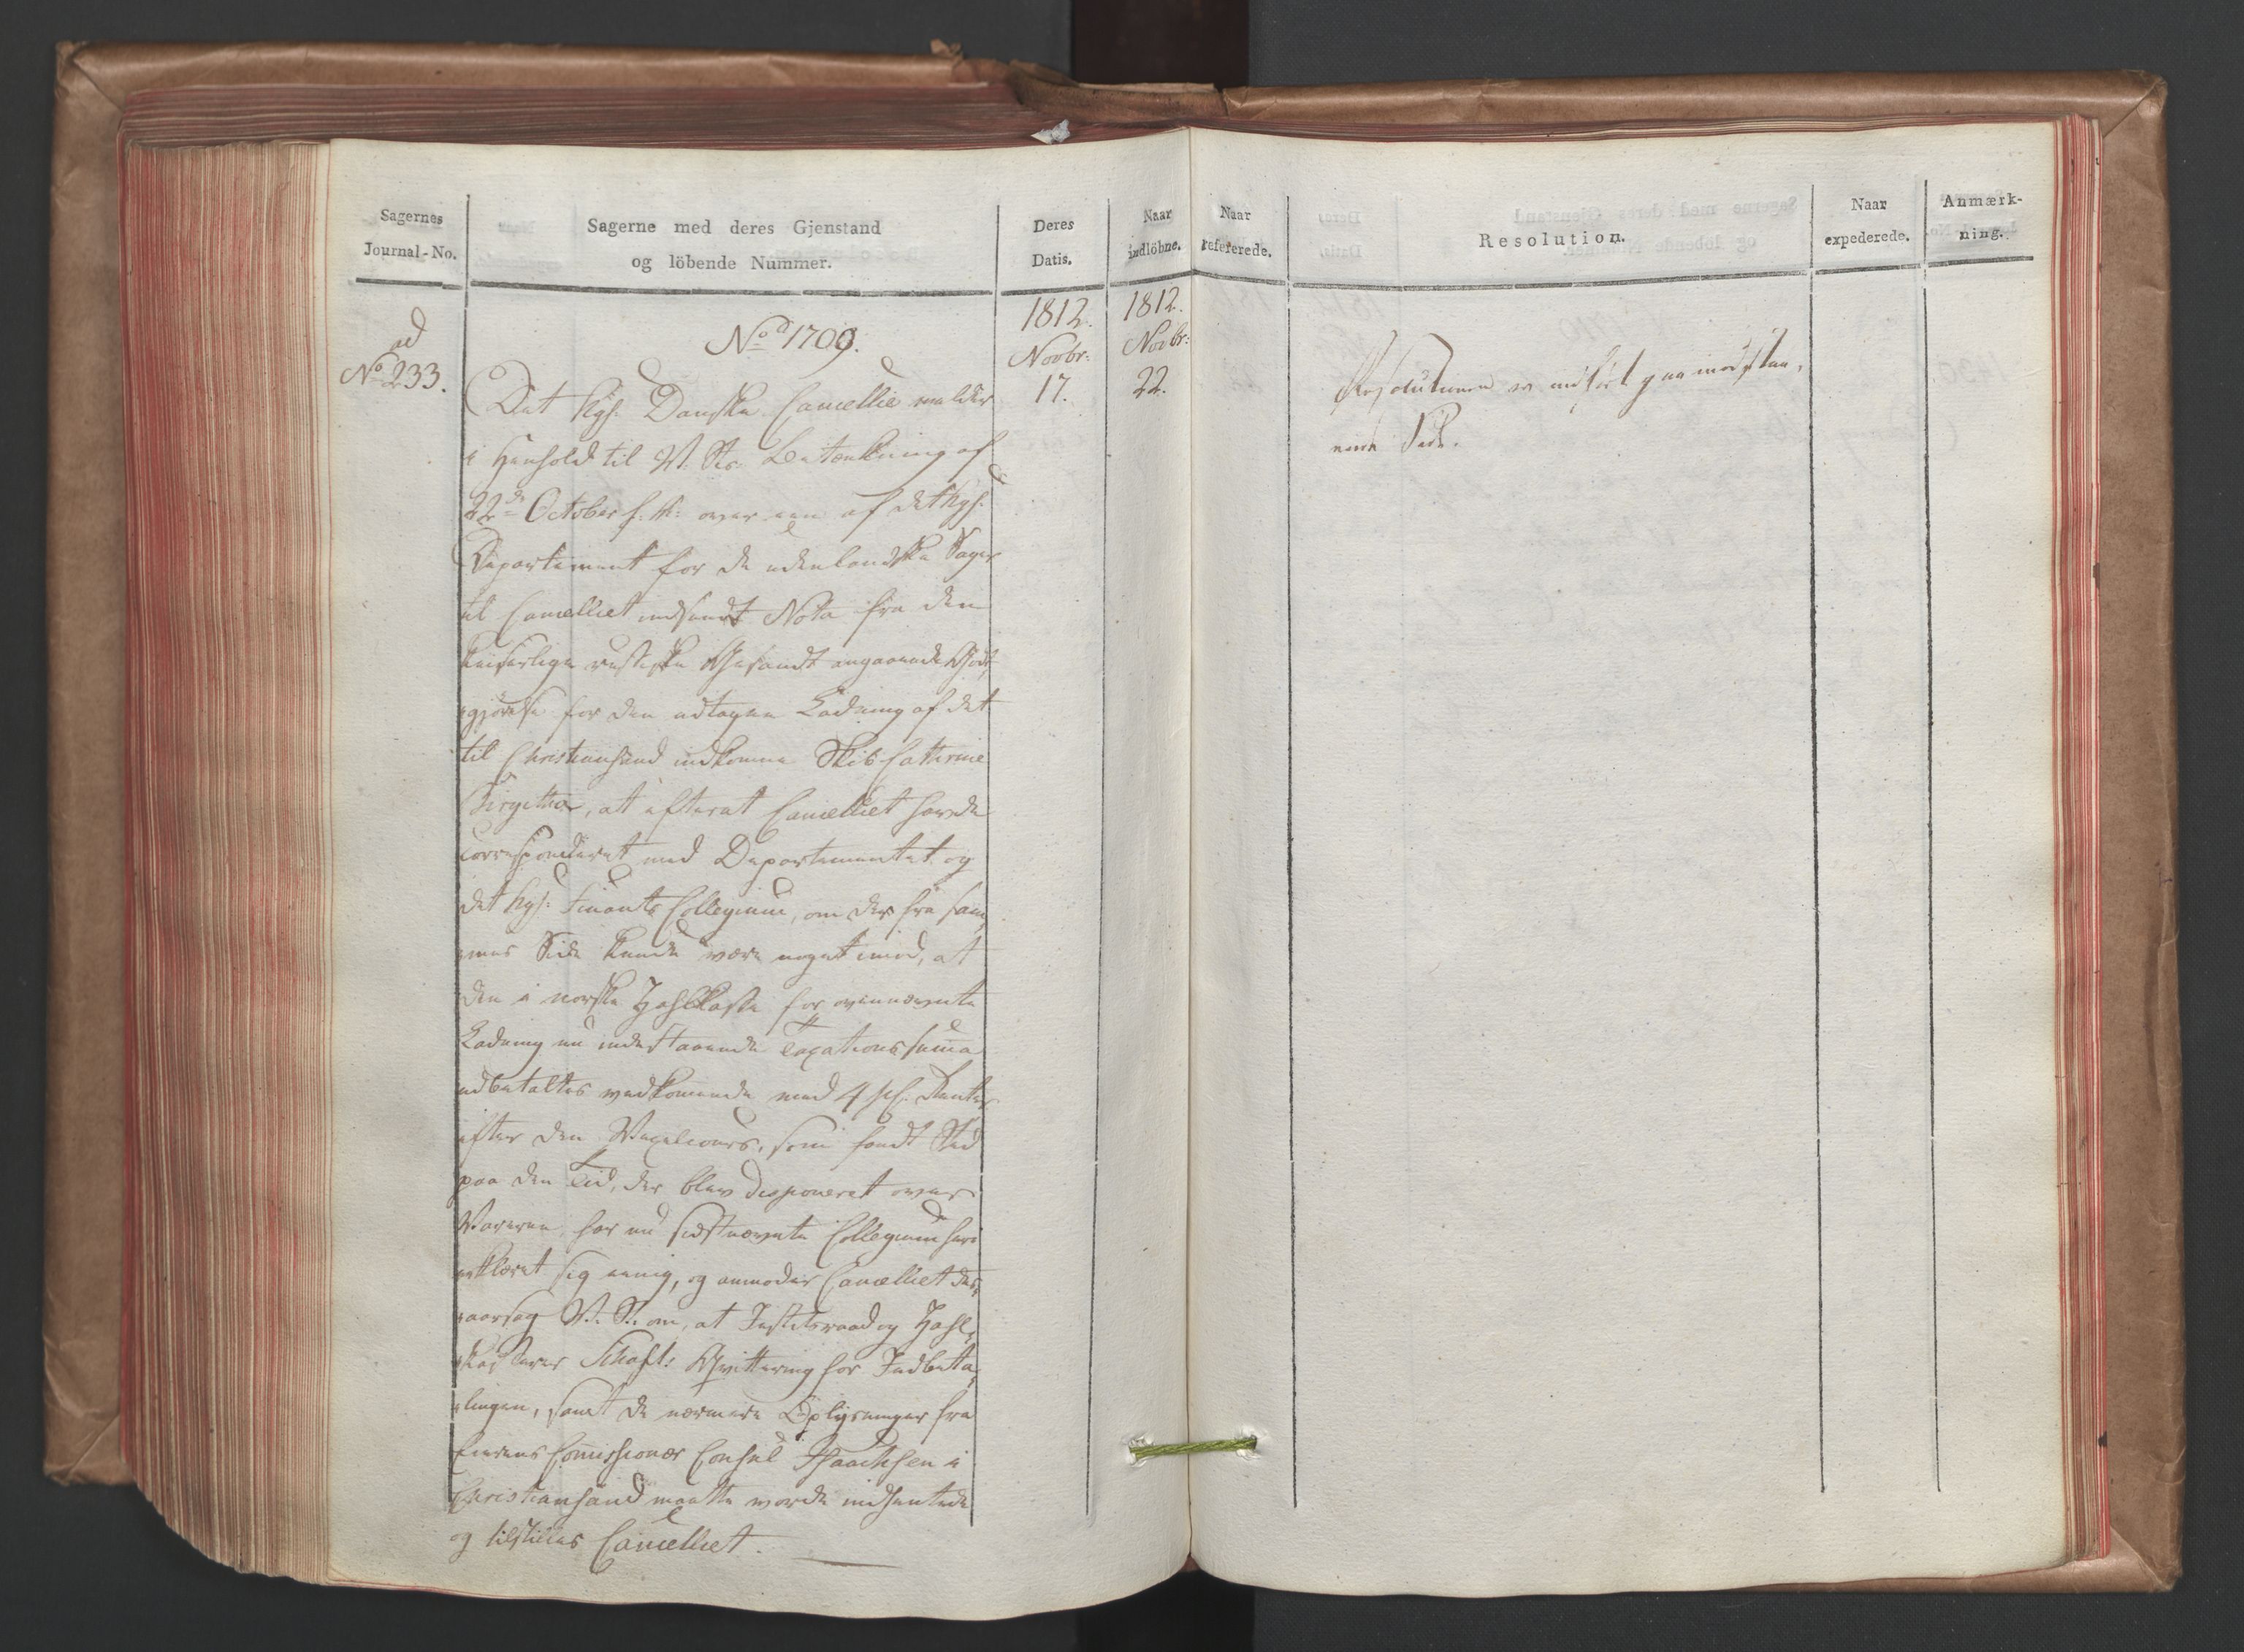 Sagernes
Journal-No.
Sagerne med deres Gjenstand
og löbende Nummer.
Deres
Datis.
Naar
indlöbne.
Naar
refererede.
Resolution.
Naar
expederede.
Anmærk-
ning.
ad
No 233.
No 1709.
1812.
Novbr:
17.
1812.
Novbr:
22.
Det Kgl: Danske Cancellie melder
i Henhold til V. St: Betænkning af
22de October f: A: over een af det Kgl:
Departement for de udenlandske Sager
til Cancelliet indsendt Nota fra den
keiserlige russiske Gesandt angaaende Godt,
gjörelse for den udtagne Ladning af det
til Christiansand indkomne Skib Cathrine
Birgitha, at efterat Cancelliet havde
correspenderet med Departementet og
det Kgl: Finants Collegium, om der fra sam,
mes Side kunde være noget imod, at
den i norske Zahlkasse for ovennævnte
Ladning nu indestaaende Taxations suma
udbetaltes vedkomende med 4 pC: Renter
efter den Vexelcours, som fandt Sted
paa den Tid, der blev disponeret over
Varerne, har nu sidstnævnte Collegium heri
erklæret sig eenig, og anmoder Cancelliet des,
aarsag V. St. om, at Justitsraad og Zahl,
kasserer Schaft: Qvittering for Indbetta,
lingen, samt de nærmere Oplysninger fra
Eierens Comissionær Consul Isaachsen i
Christiansand maatte vorde indhentede
og tilstilles Cancelliet.
Resolutionen er anfört paa modstaa,
ende Side.